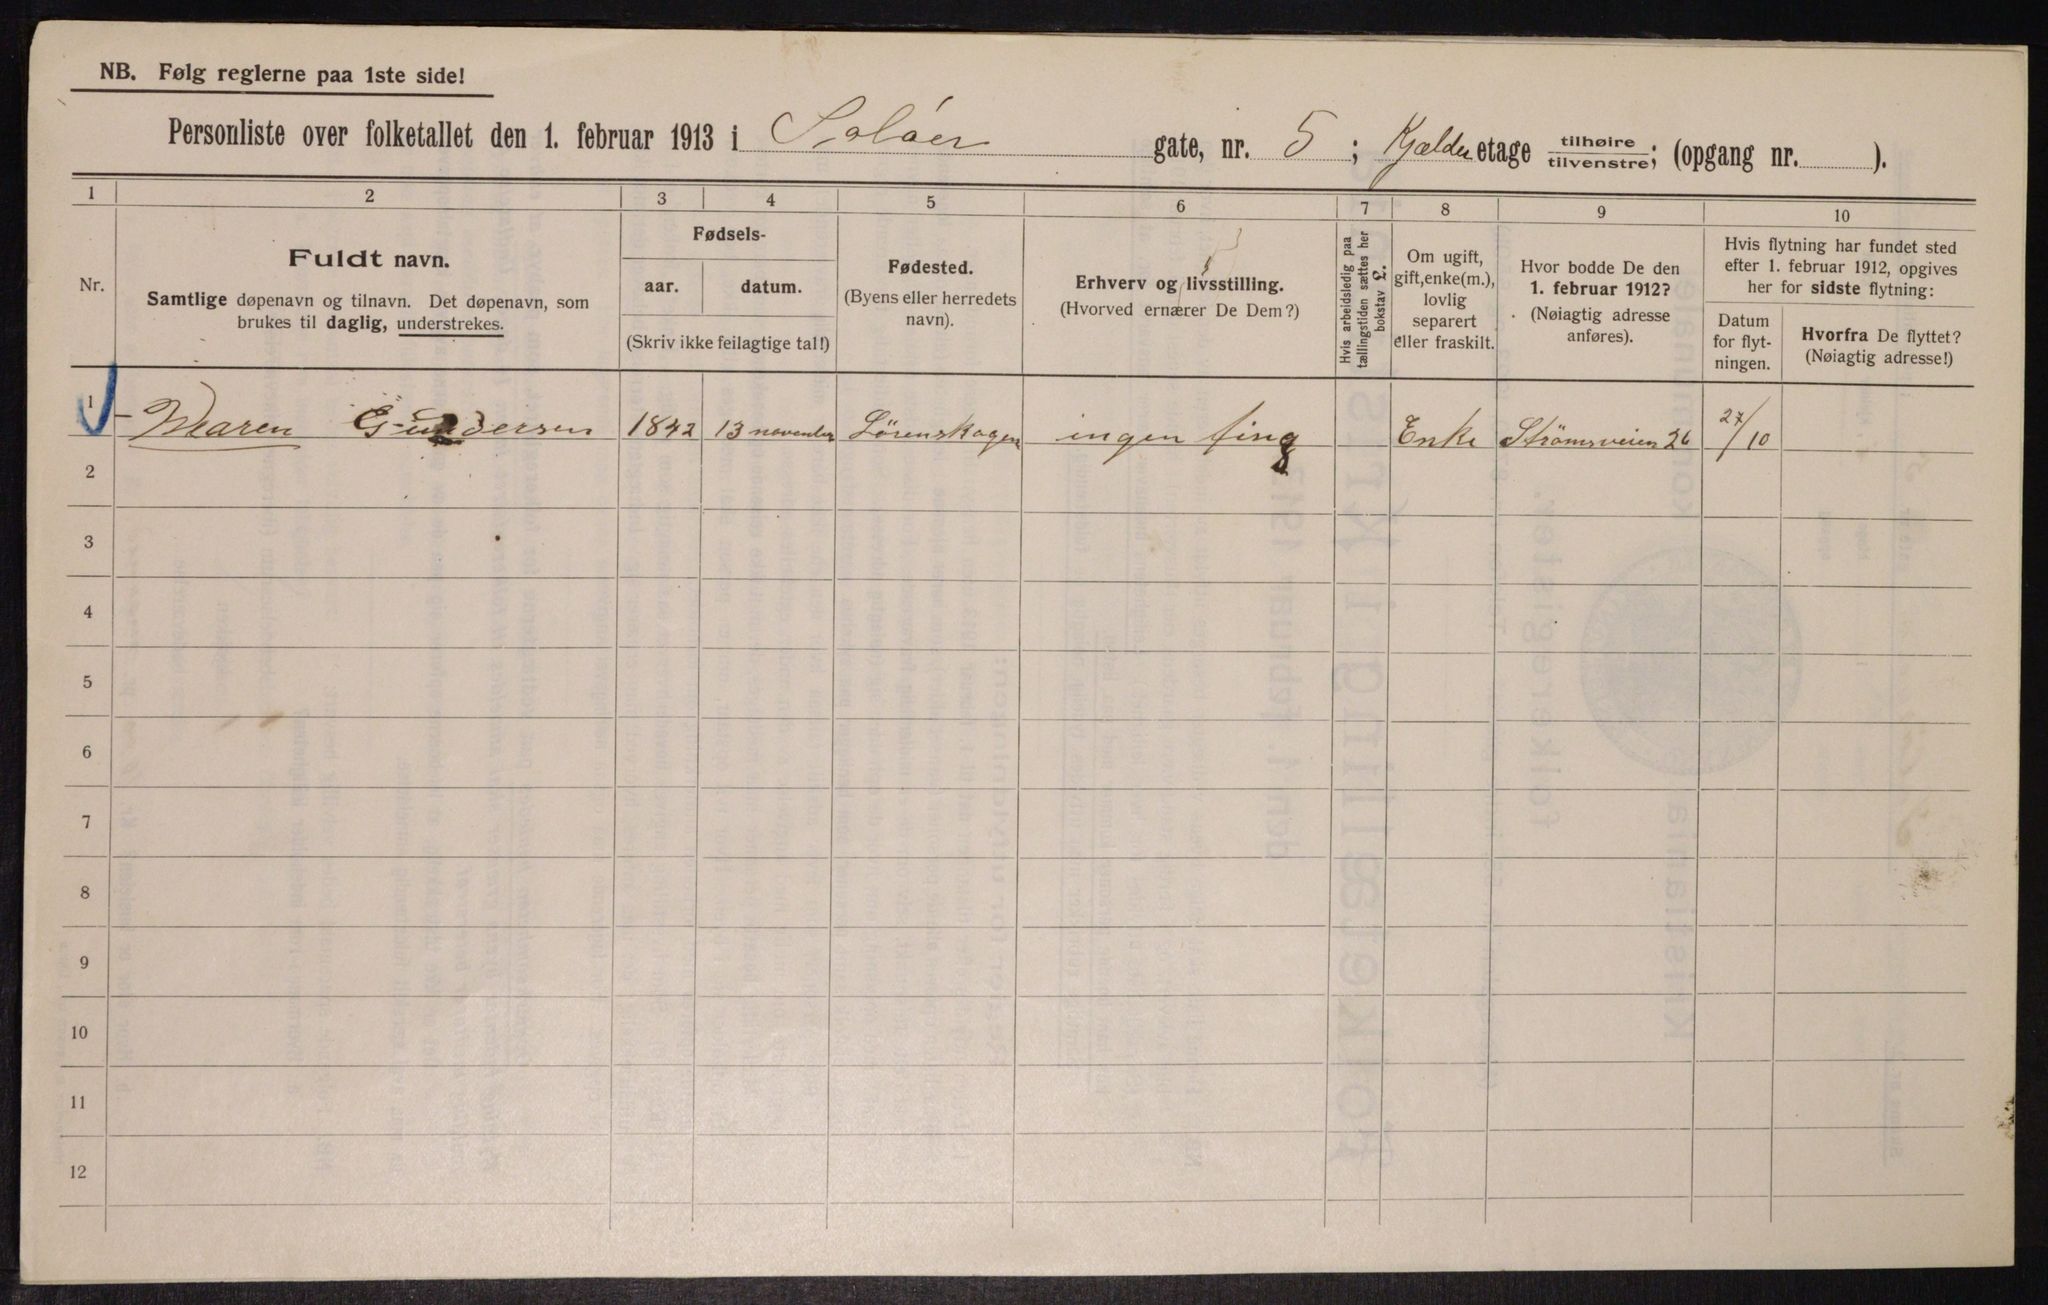 NB. Følg reglerne paa 1ste side!
Personliste over folketallet den 1. februar 1913 i Soløer gate, nr. 5; Kjælder etage tilhøire/tilvenstre; (opgang nr. ).
1 2 3 4 5 6 7 8 9 10
Nr.
Fuldt navn.
Samtlige døpenavn og tilnavn. Det døpenavn, som
brukes til daglig, understrekes.
Fødsels-
aar. datum.
(Skriv ikke feilagtige tal!)
Fødested.
(Byens eller herredets
navn).
Erhverv og livsstilling.
(Hvorved ernærer De Dem?)
Hvis arbeidsledig paa
tællingstiden sættes her
bokstav L.
Om ugift,
gift, enke(m.),
lovlig
separert
eller fraskilt.
Hvor bodde De den
1. februar 1912?
(Nøiagtig adresse
anføres).
Hvis flytning har fundet sted
efter 1. februar 1912, opgives
her for sidste flytning:
Datum
for flyt-
ningen.
Hvorfra De flyttet?
(Nøiagtig adresse!)
1 Maren Gundersen 1842 13 november Lørenskogen ingen ting Enke Strømsveien 26 27/10
2
3
4
5
6
7
8
9
10
11
12